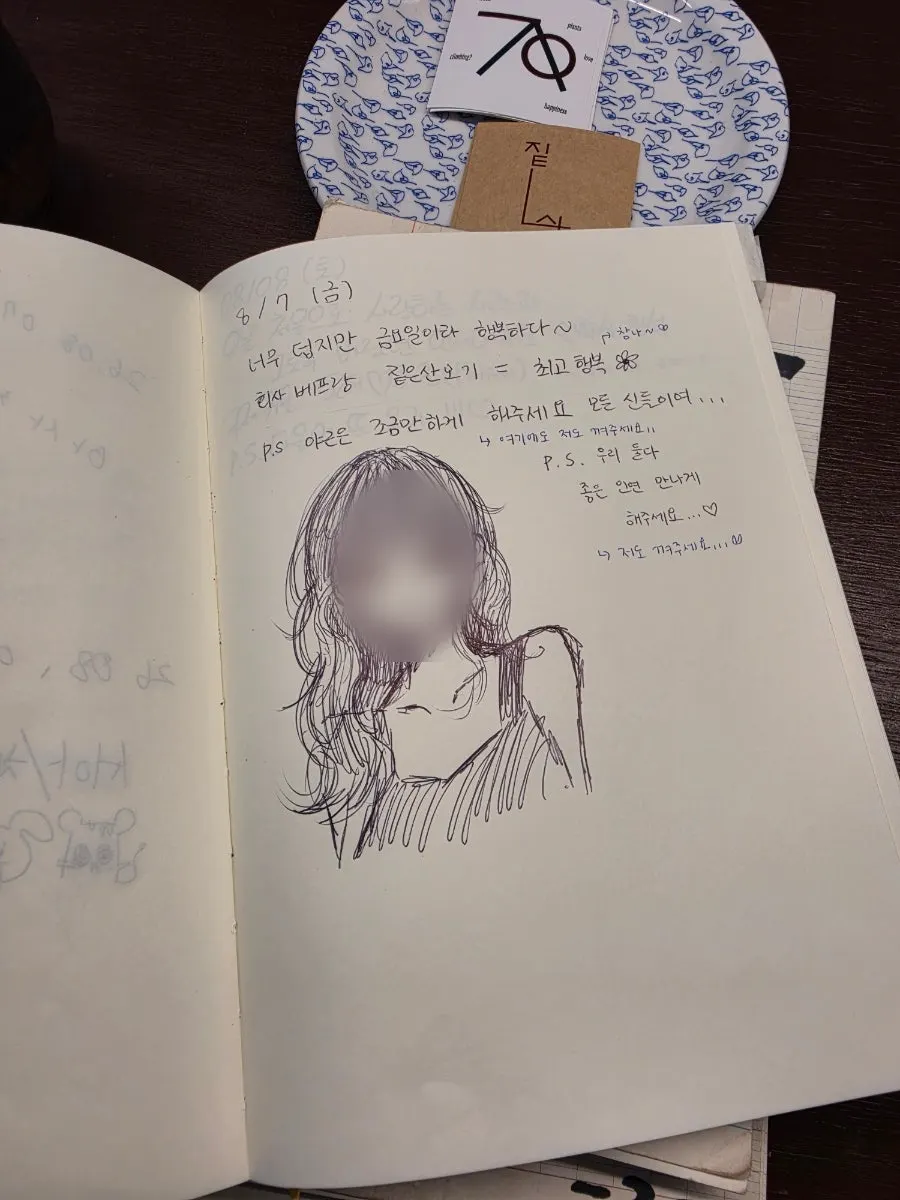 plants
climbing?
love
happiness
짙
8/7 (금)
너무 덥지만 금요일이라 행복하다~
회사 베프랑 짙은산오기 = 최고 행복
P.S 야근은 조금만하게 해주세요 모든 신들이여...
↳ 여기에도 저도 껴주세요!!
P.S. 우리 둘다
좋은 인연 만나게
해주세요...♡
↳ 저도 껴주세요...♡